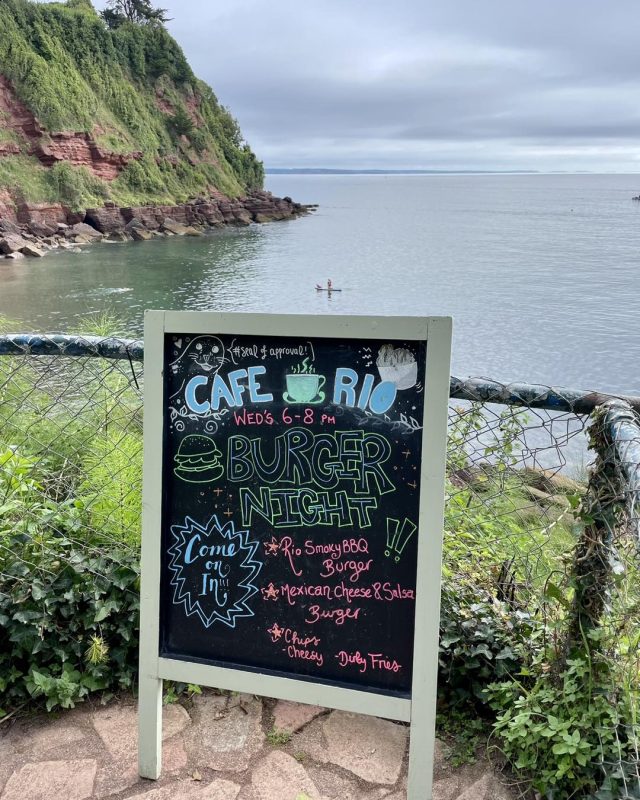 #Seal of approval!
CAFE RIO
WED'S 6-8 PM
BURGER
NIGHT!!
Come
on
In!!!
Rio Smoky BBQ
Burger
Mexican Cheese & Salsa
Burger
Chips
-Cheesy -Dirty Fries